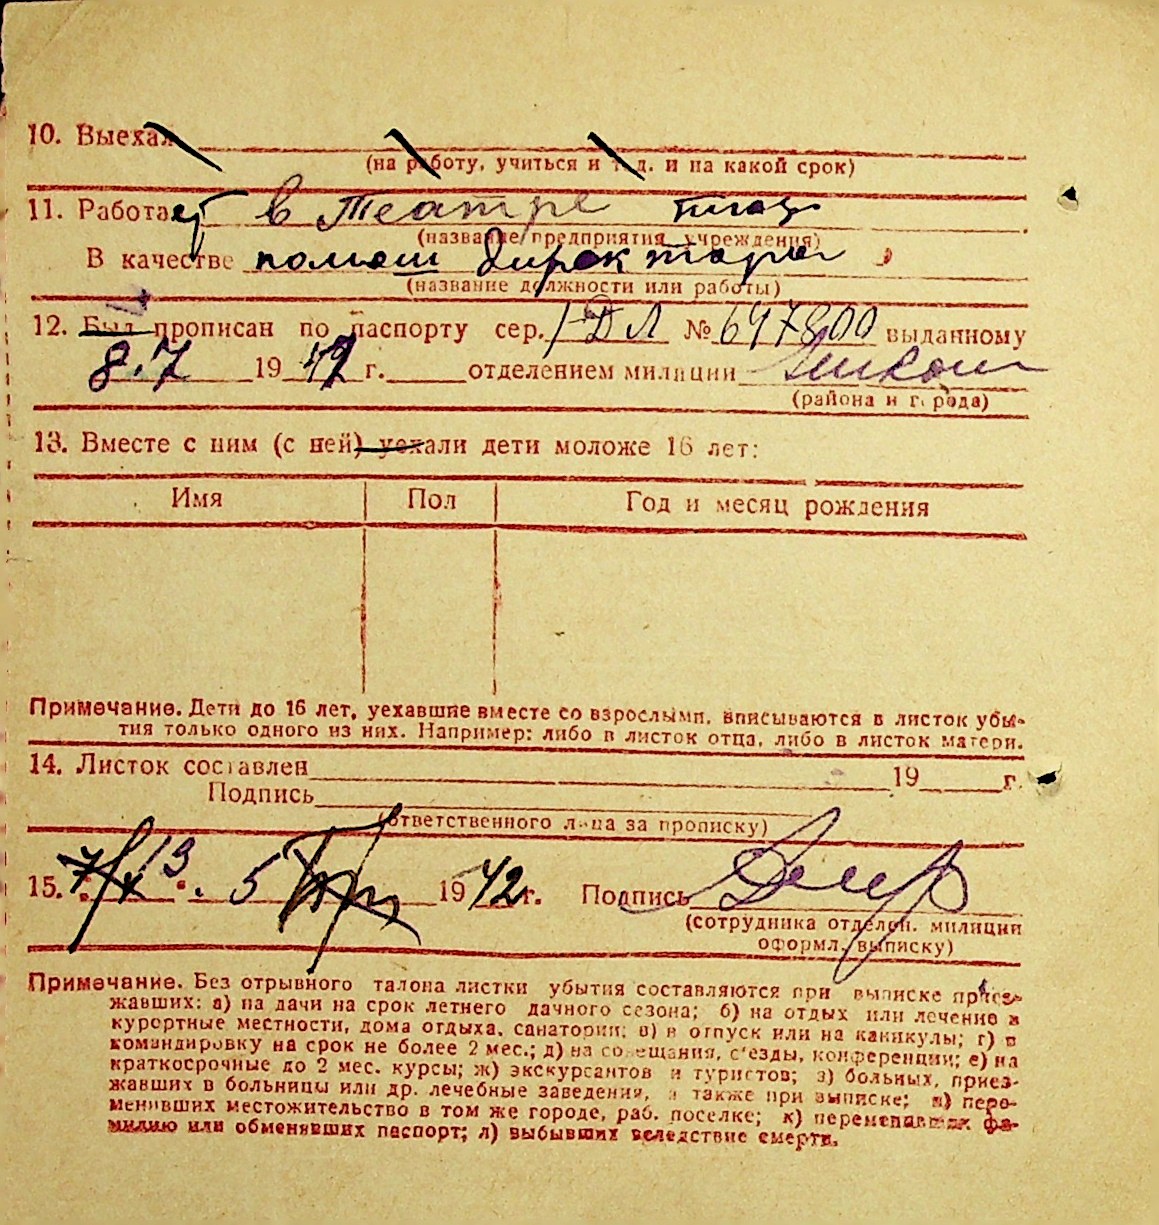 10. Выехал
(на работу, учиться и т. д. и на какой срок)
11. Работает в театре
(название предприятия, учреждения)
В качестве помощ директора
(название должности или работы)
12. Был прописан по паспорту сер. I-ДЛ № 647800 выданному
8.7 19 г. отделением милиции
(района и города)
13. Вместе с ним (с ней) уехали дети моложе 16 лет:
Имя Пол Год и месяц рождения
Примечание. Дети до 16 лет, уехавшие вместе со взрослыми, вписываются в листок убы-
тия только одного из них. Например: либо в листок отца, либо в листок матери.
14. Листок составлен 19 г.
Подпись
(ответственного лица за прописку)
15. 13. 5 1942 г. Подпись
(сотрудника отделен. милиции
оформл. выписку)
Примечание. Без отрывного талона листки убытия составляются при выписке приез-
жавших: а) на дачи на срок летнего дачного сезона; б) на отдых или лечение в
курортные местности, дома отдыха, санатории; в) в отпуск или на каникулы; г) в
командировку на срок не более 2 мес.; д) на совещания, с'езды, конференции; е) на
краткосрочные до 2 мес. курсы; ж) экскурсантов и туристов; з) больных, приез-
жавших в больницы или др. лечебные заведения, а также при выписке; и) пере-
менивших местожительство в том же городе, раб. поселке; к) переменивших фа-
милию или обменявших паспорт; л) выбывших вследствие смерти.